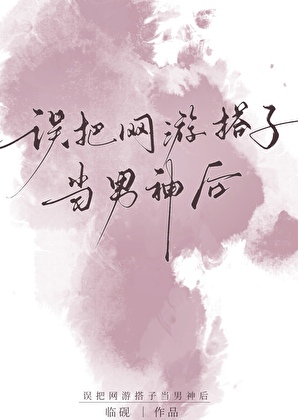 误把网游搭子
当男神后
误把网游搭子当男神后
临砚｜作品